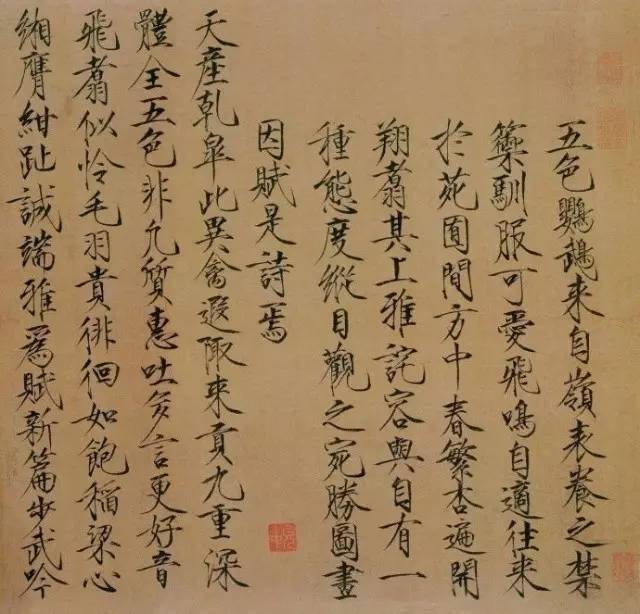 五色鸚鵡来自嶺表養之禁
籞馴服可愛飛鳴自適往来
於苑囿間方中春繁杏遍開
翔翥其上雅詫容與自有一
種態度縱目觀之宛勝圖畫
因賦是詩焉
天産乾皐此異禽遐陬来貢九重深
體全五色非凡質惠吐多言更好音
飛翥似怜毛羽貴徘徊如飽稻粱心
緗膺紺趾誠端雅為賦新篇步武吟